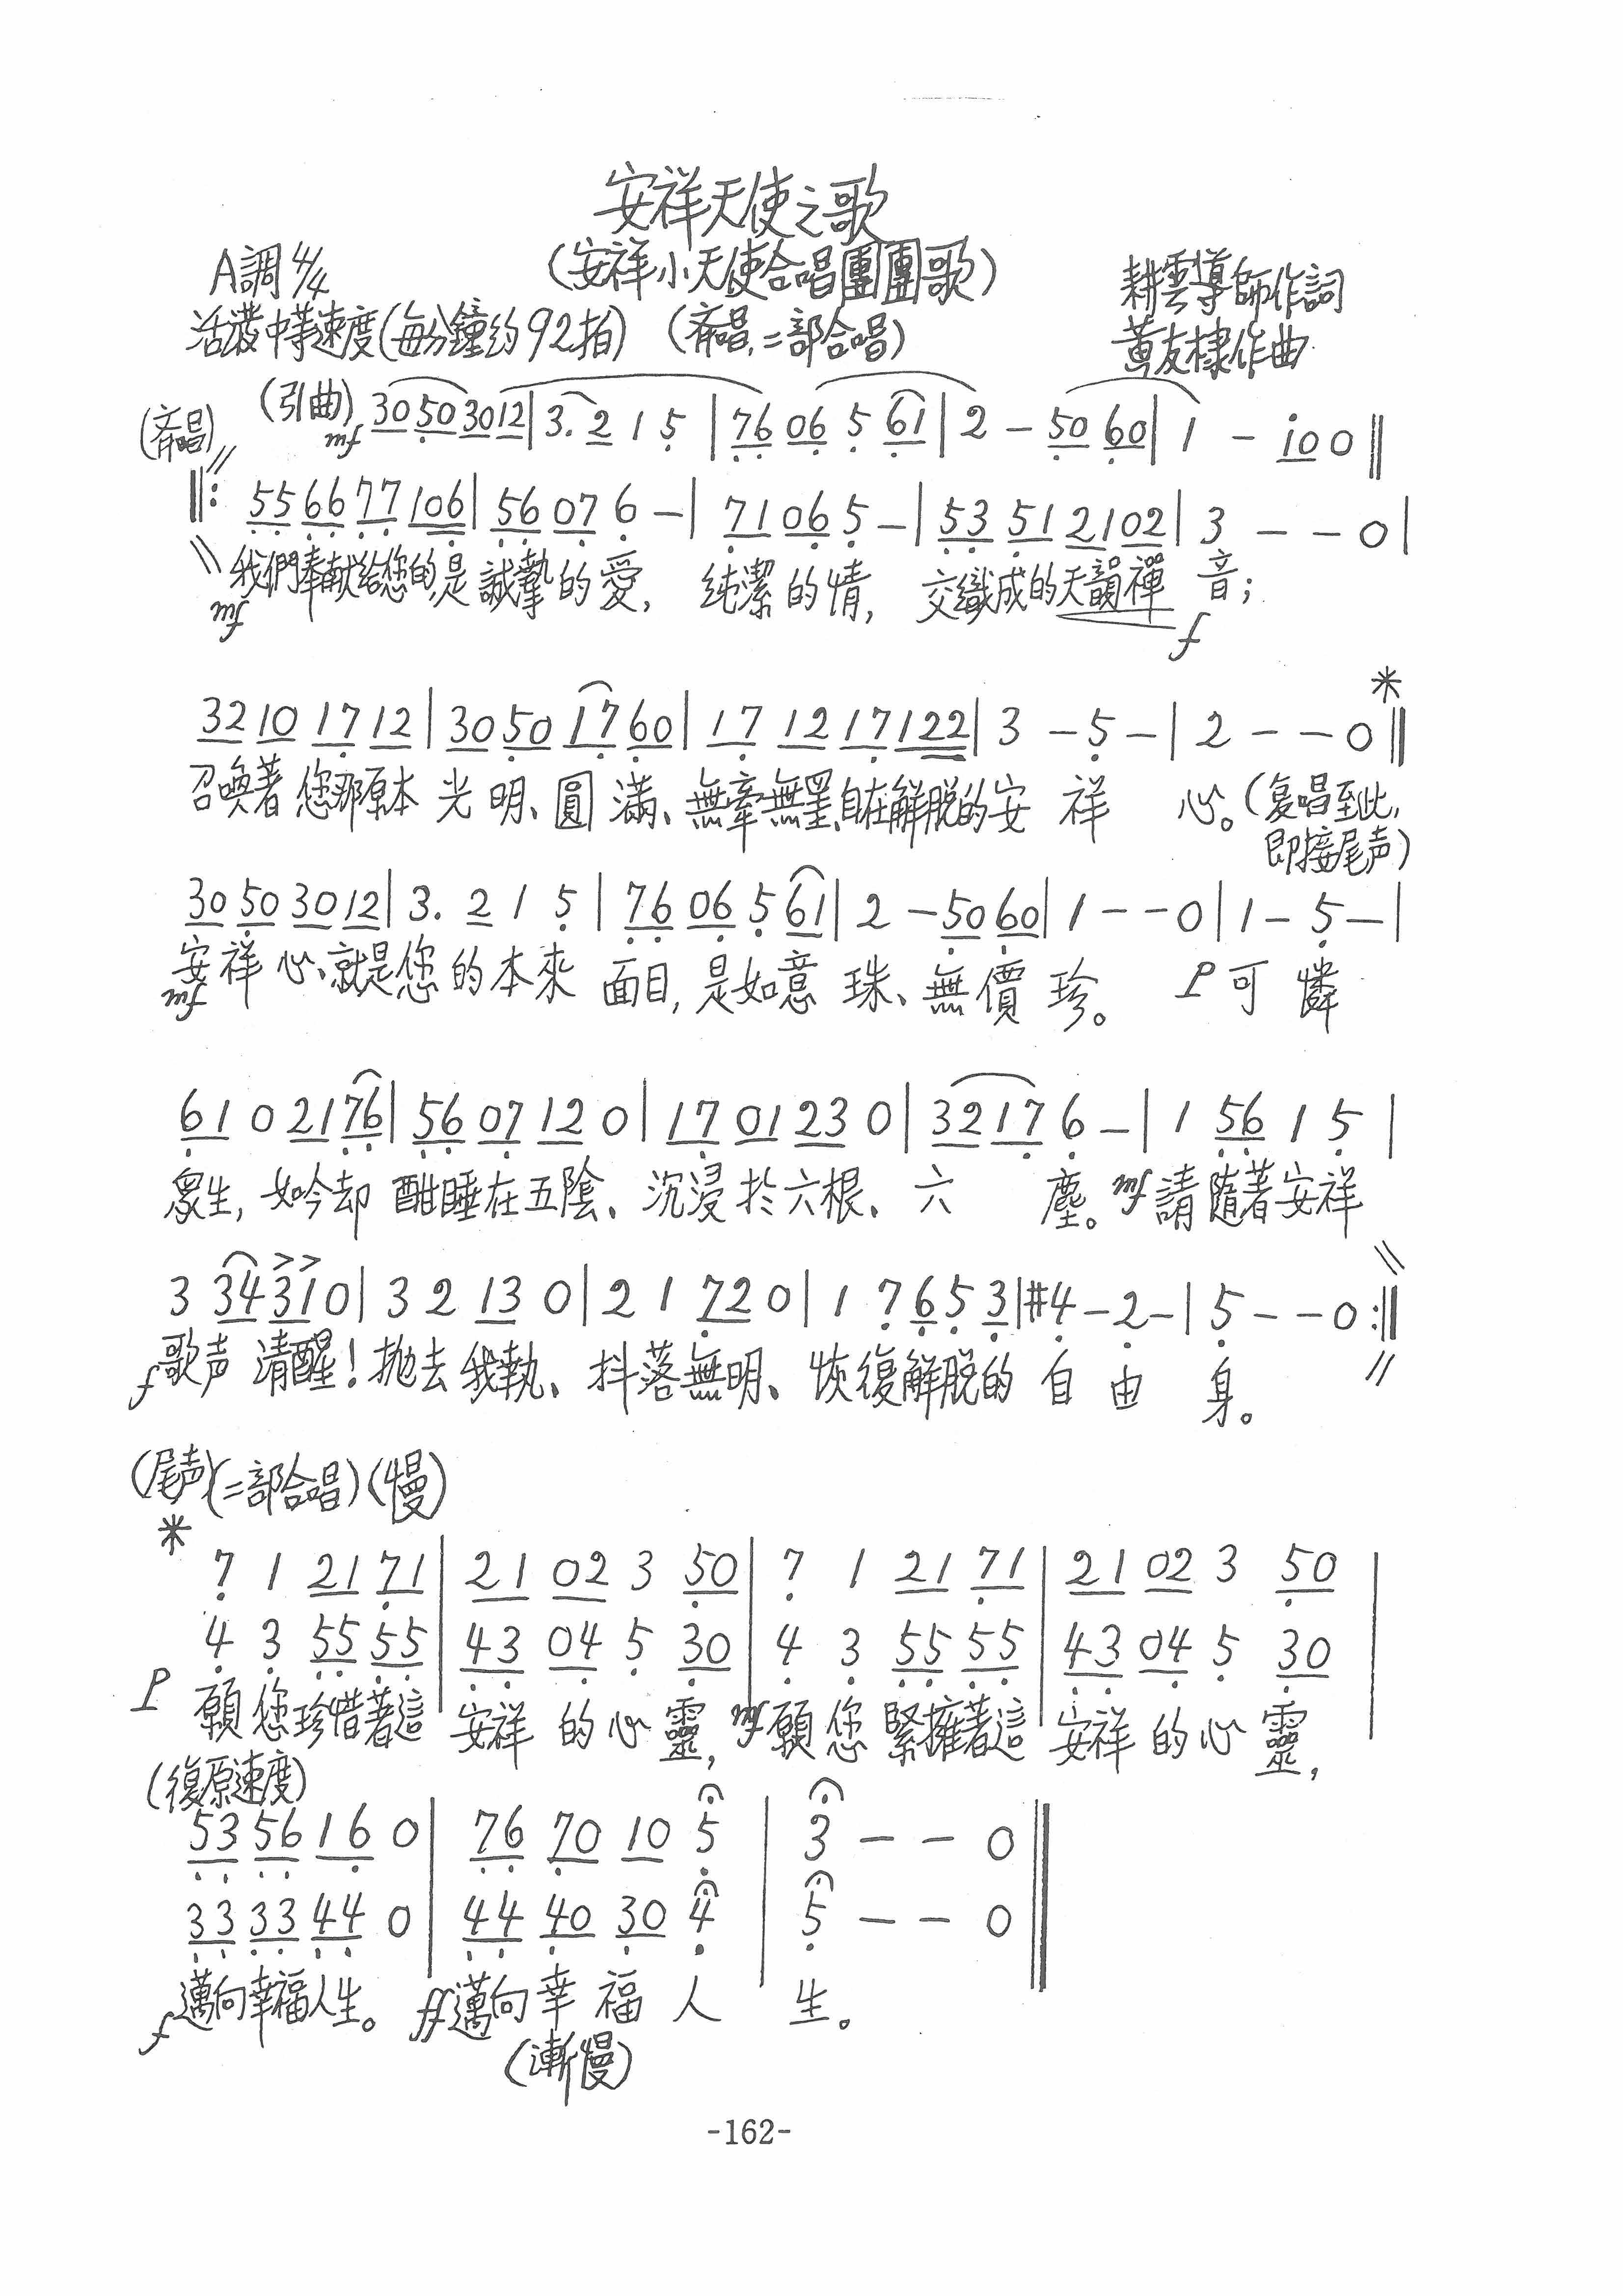 安祥天使之歌
A調 4/4
(安祥小天使合唱團團歌)
耕雲導師作詞
活潑中等速度(每分鐘約92拍) (齊唱,二部合唱)
黃友棣作曲
(齊唱) (引曲) mf 30 50 30 12 | 3. 2 1 5 | 76 06 5 61 | 2 - 50 60 | 1 - i0 0 ‖
‖: 55 66 77 106 | 56 07 6 - | 71 06 5 - | 53 51 21 02 | 3 - - 0 |
mf 我們奉献給您的,是誠摯的愛, 純潔的情, 交織成的天韻禪 音; f
32 10 17 12 | 30 50 17 60 | 17 12 17 122 | 3 - 5 - | 2 - - 0 ‖ *
召喚著您那原本光明、圓滿、無牽無罣、自在解脫的安祥 心。(复唱至此,
即接尾声)
30 50 30 12 | 3. 2 1 5 | 76 06 5 61 | 2 - 50 60 | 1 - - 0 | 1 - 5 - |
mf 安祥心、就是您的本來面目,是如意珠、無價珍。 P 可憐
61 0 21 76 | 56 07 12 0 | 17 01 23 0 | 32 17 6 - | 1 56 1 5 |
眾生,如今却酣睡在五陰、沉浸於六根、六 塵。mf 請隨著安祥
3 34 31 0 | 3 2 13 0 | 2 1 72 0 | 1 7 6 5 3 | #4 - 2 - | 5 - - 0 :‖
f 歌声清醒!拋去我執、抖落無明、恢復解脫的自由 身。
(尾声)(二部合唱)(慢)
*
7 1 21 71 | 21 02 3 50 | 7 1 21 71 | 21 02 3 50 |
4 3 55 55 | 43 04 5 30 | 4 3 55 55 | 43 04 5 30 |
P 願您珍惜著這安祥的心靈, mf 願您緊擁著這安祥的心靈,
(復原速度)
53 56 16 0 | 76 70 10 5 | 3 - - 0 ‖
33 33 44 0 | 44 40 30 4 | 5 - - 0 ‖
f 邁向幸福人生。 ff 邁向幸福人 生。
(漸慢)
-162-